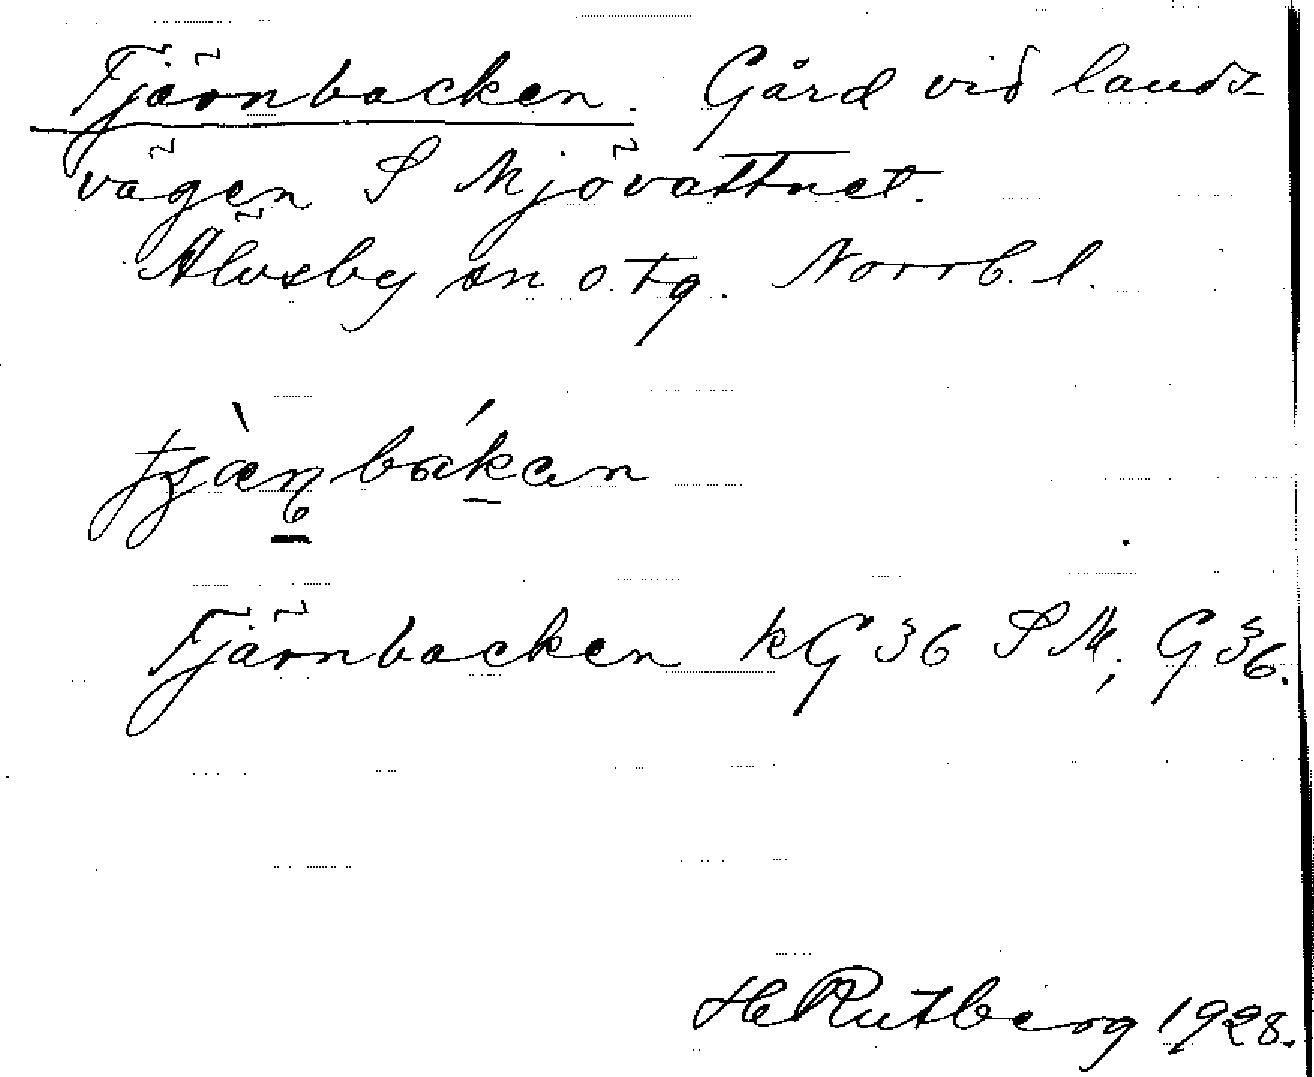 Tjärnbacken. Gård vid lands-
vägen S Mjövattnet.
Älvsby sn o. tg. Norrb. l.
Tjärnbacken kG 36 S M, G 36.
H Rutberg 1928.